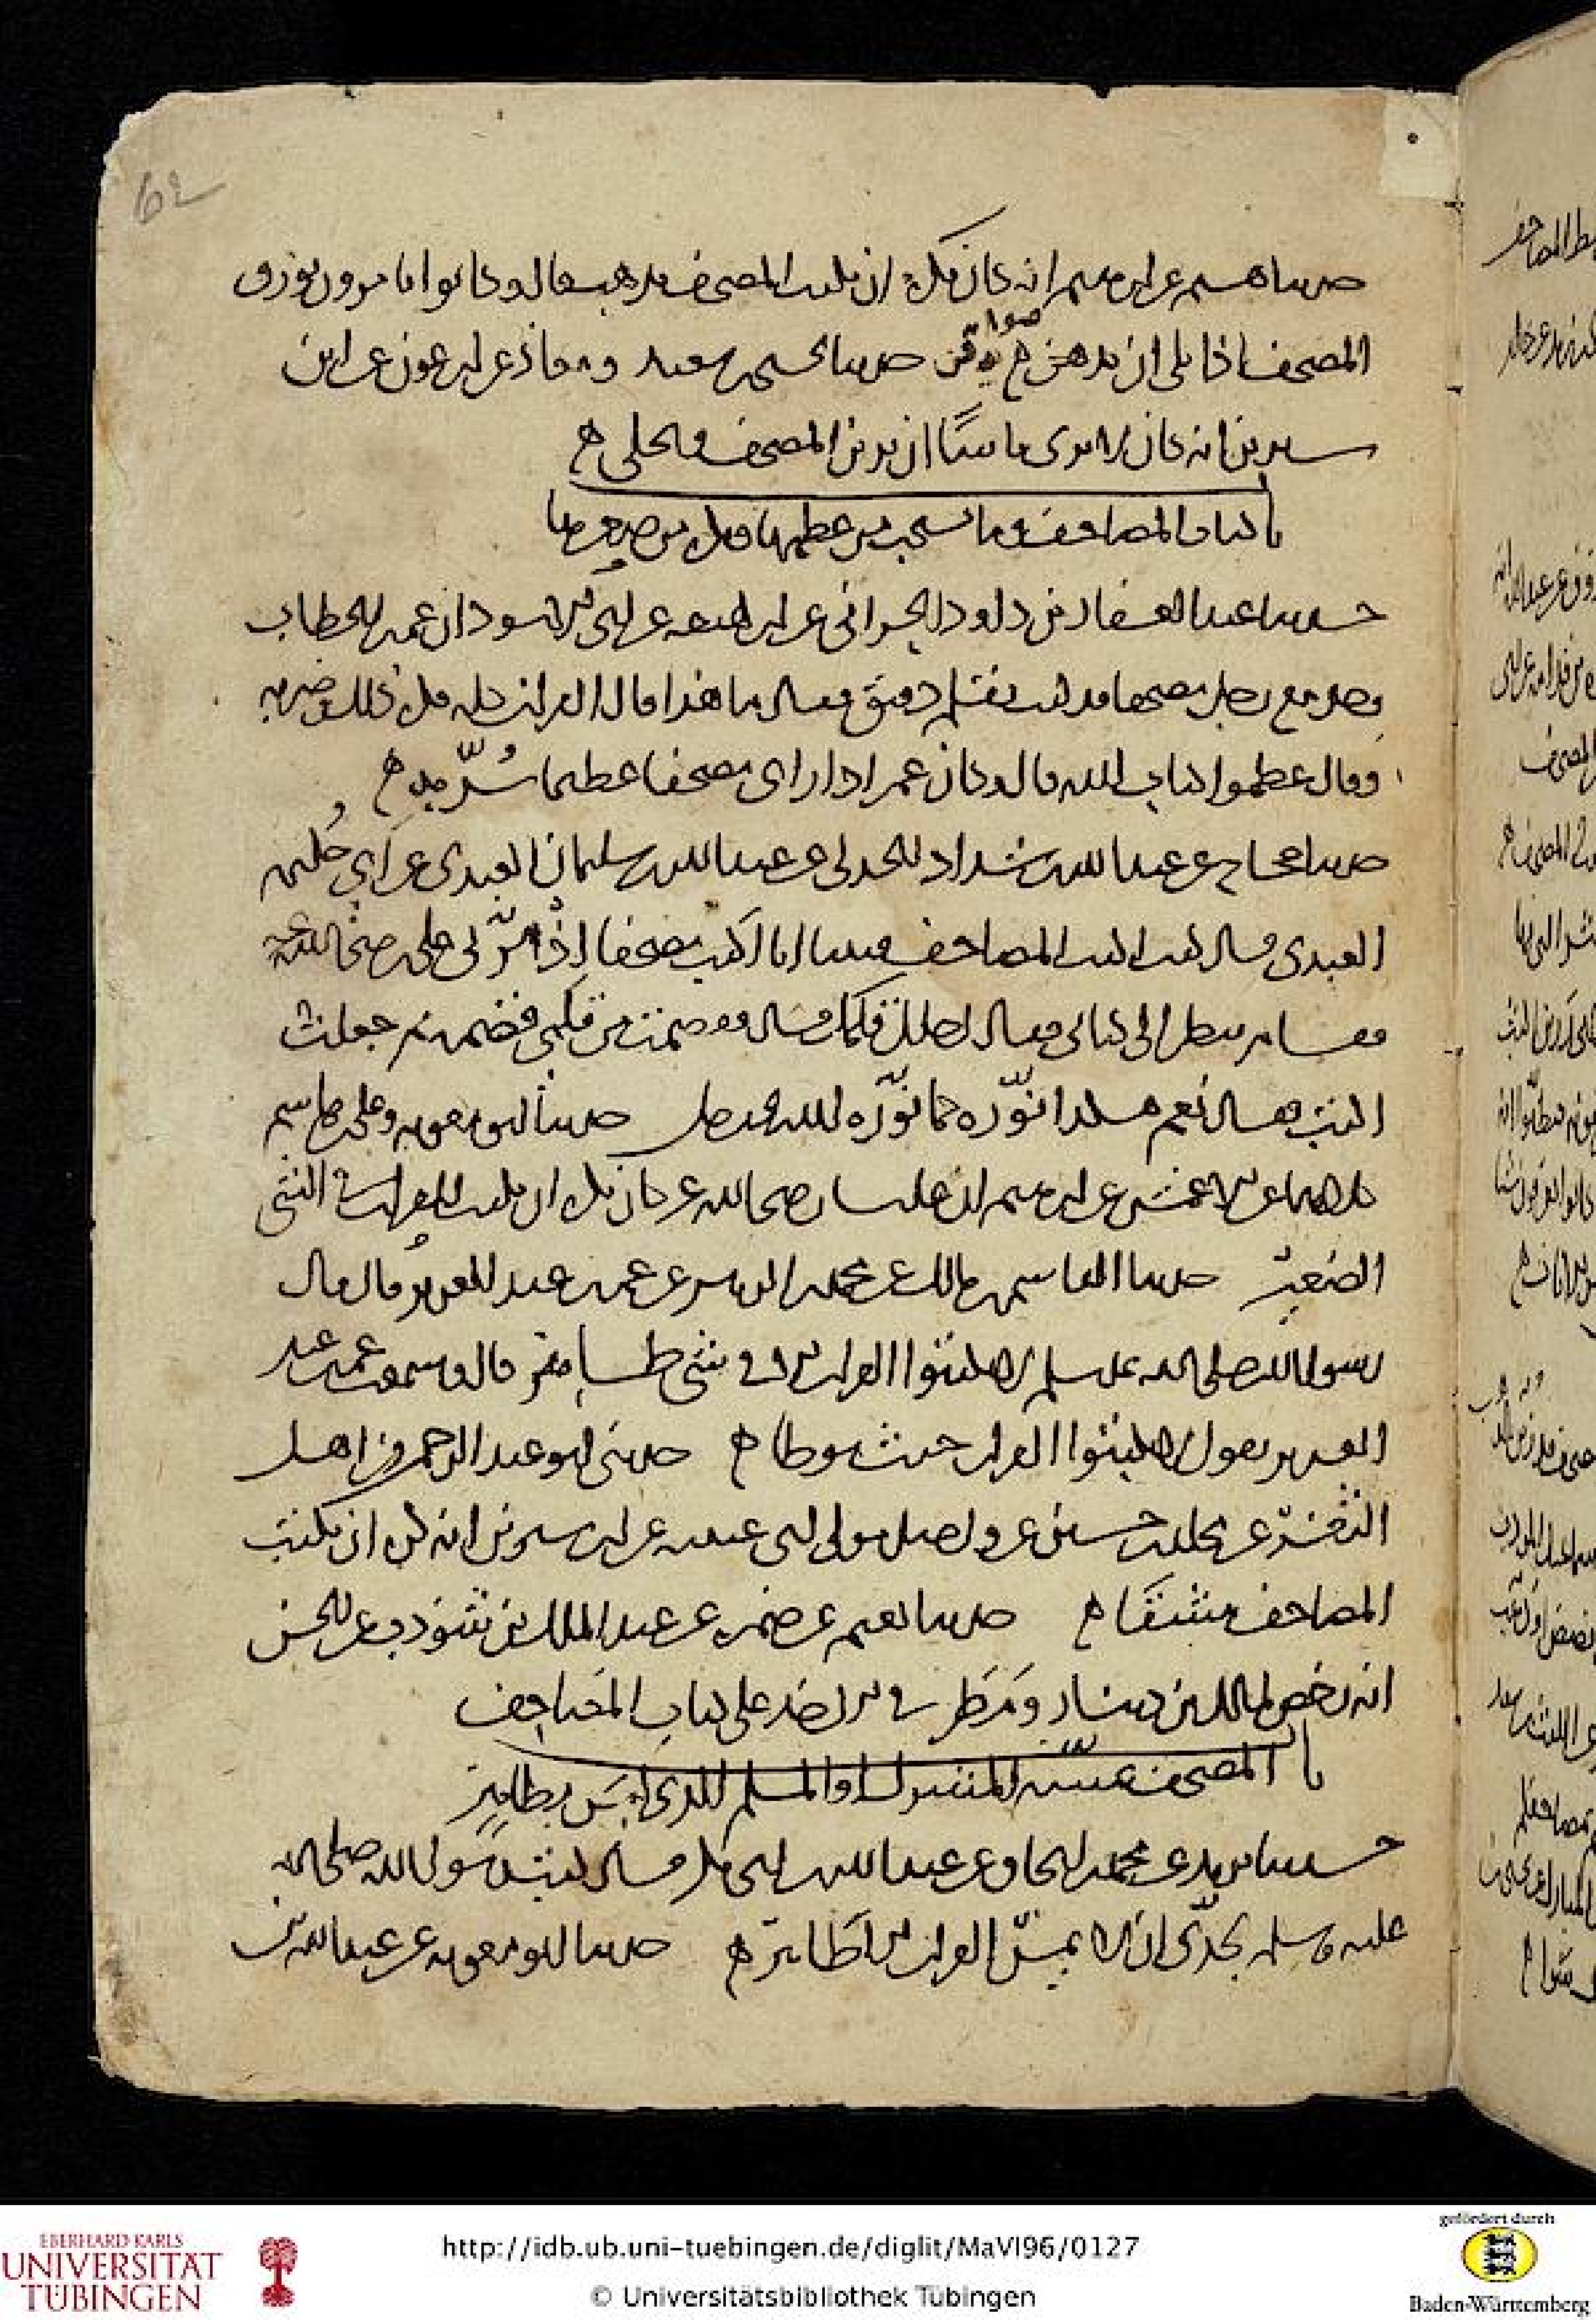 62
حدثنا هشيم عن مغيرة عن ابرهيم انه كان يكره ان يكتب المصحف بذهب قال وكانوا يامرون بورق
المصحف اذا بلى ان يدفن
حدثنا يحيى بن سعيد ومعاذ عن ابن عون عن ابن
سيرين انه كان لا يرى باسًا ان يزين المصحف ويحلى ه
باب كتاب المصاحف وما يستحب من عظمها ويكره من صغرها
حدثنا عبد الغفار بن داود الحراني عن ابن لهيعة عن ابى الاسود ان عمر بن الخطاب
وجد مع رجل مصحفا قد كتبه بقلم دقيق فقال ما هذا قال القران كله فكره ذلك وضربه
وقال عظموا كتاب الله قال وكان عمر اذا راى مصحفا عظيما سُرّ به ه
حدثنا حجاج عن عبد الله بن شداد الجدلى عن عبيد الله بن سليمان العبدى عن ابي حُكيمة
العبدى قال كنت اكتب المصاحف فبينا انا اكتب مصحفا اذ مرّ بى على رضى الله عنه
فقام ينظر الى كتابى فقال اجلل قلمك قال فقصمت من قلمي قصمة ثم جعلت
اكتب فقال نعم هكذا نوّره كما نوّره الله عز وجل حدثنا ابو معوية وعلى بن هاشم
كلاهما عن الاعمش عن ابرهيم ان عليا رضى الله عنه كان يكره ان يكتب القران في الشي
الصغير حدثنا القاسم بن مالك عن محمد بن الزبير عن عمر بن عبد العزيز قال قال
رسول الله صلى الله عليه وسلم لا تكتبوا القران الا في شي طاهر قال وسمعت عمر بن عبد
العزيز يقول لا تكتبوا القران حيث يوطا ه حدثني ابو عبد الرحمن من اهل
الثغر عن مخلد بن حسين عن واصل مولى ابى عيينة عن ابن سيرين انه كره ان تكتب
المصاحف مشقًا ه حدثنا نعيم عن ضمرة عن عبد الله بن شوذب عن الحسن
انه رخص لمالك بن دينار ومطر في الاخذ على كتاب المصاحف
باب المصحف يمسه المشرك او المسلم الذى ليس بطاهر
حدثنا يزيد عن محمد بن اسحاق عن عبد الله بن ابى بكر قال كتب رسول الله صلى الله
عليه وسلم لجدّى ان لا يمسّ القران الا طاهر ه حدثنا ابو معوية عن عبد الله بن
EBERHARD KARLS
UNIVERSITÄT
TÜBINGEN
http://idb.ub.uni-tuebingen.de/diglit/MaVI96/0127
© Universitätsbibliothek Tübingen
gefördert durch
Baden-Württemberg